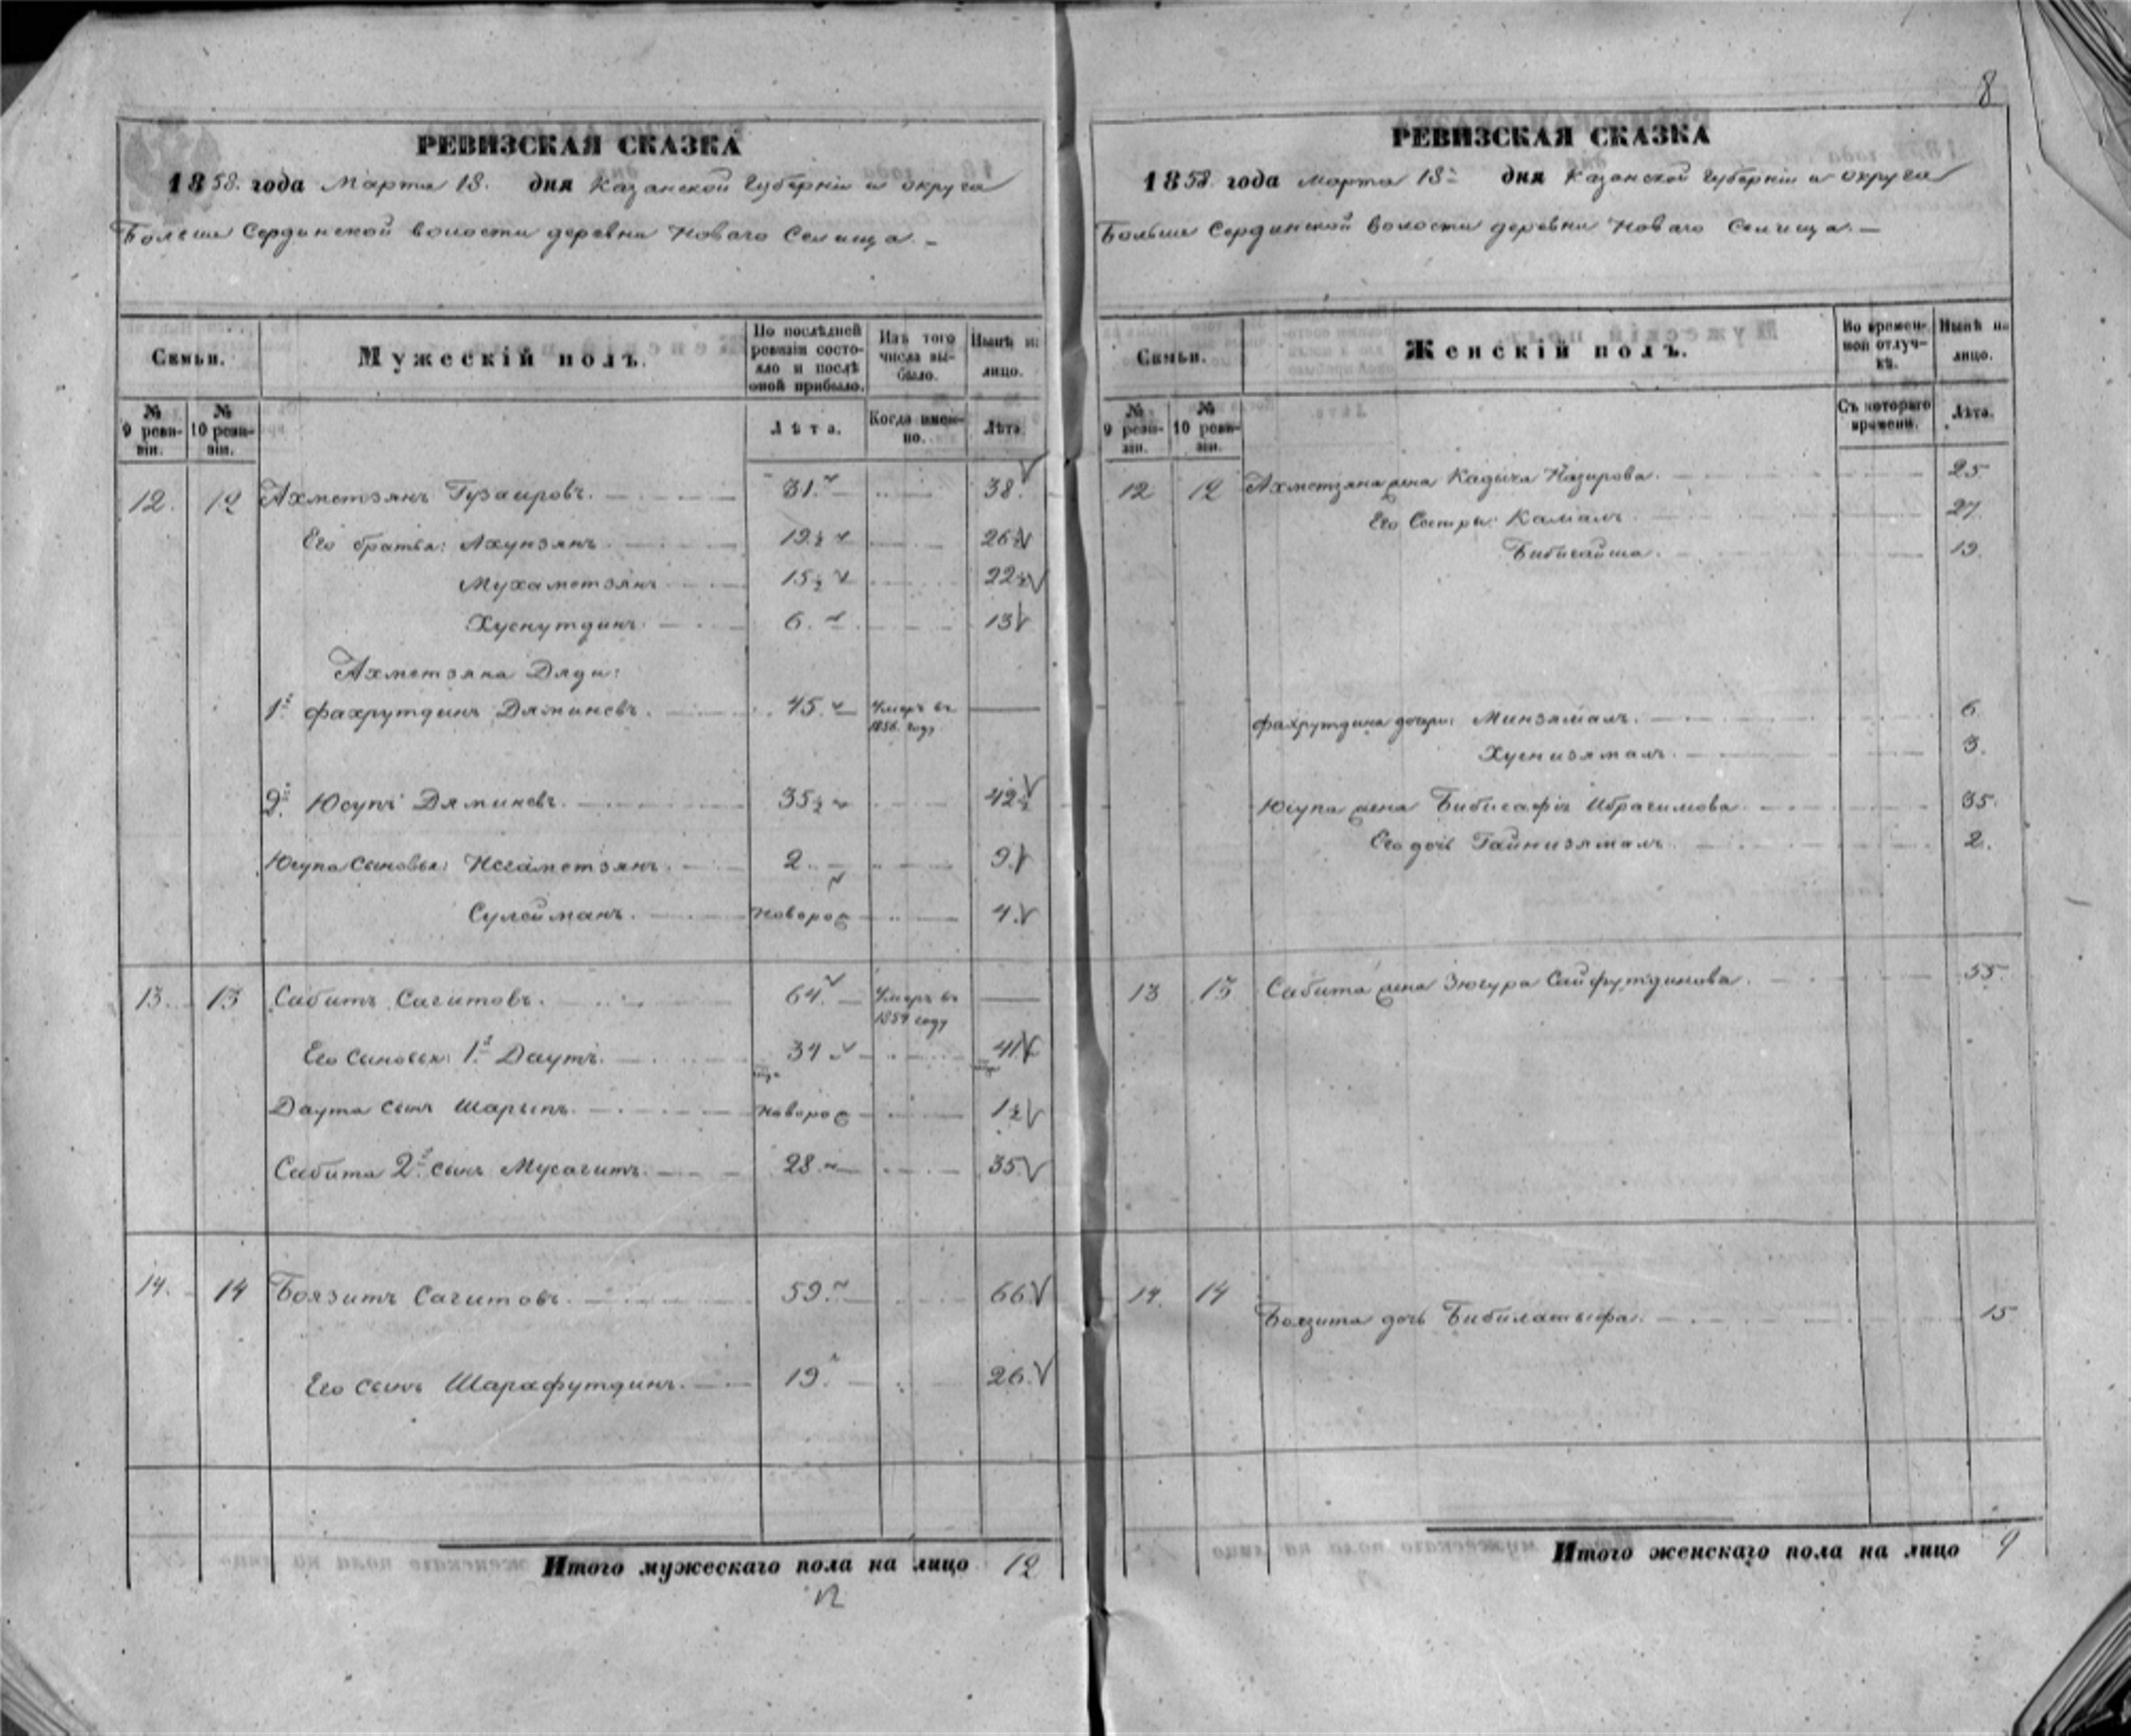 8
РЕВИЗСКАЯ СКАЗКА
1858. года Марта 18. дня Казанской Губернiи и округа
Больше Сердинской волости деревни Новаго Селища. –
Семьи.
Мужескiй полъ.
По послѣдней ревизiи состояло и послѣ оной прибыло.
Изъ того числа выбыло.
Нынѣ на лицо.
№ 9 ревизiи.
№ 10 ревизiи.
Лѣта.
Когда именно.
Лѣта.
12. 12 Ахметзянъ Гузаировъ. 31. 38.
Его братья: Ахунзянъ. 19½ 26½
Мухаметзянъ 15½ 22½
Хуснутдинъ. 6. 13
Ахметзяна Дяди:
1й Фахрутдинъ Дяминевъ. 45. Умеръ въ
1856. году
2й Юсупъ Дяминевъ. 35½ 42½
Юсупа сыновья: Негаметзянъ. 2. 9.
Сулейманъ. новорож 4.
13. 13 Сабитъ Сагитовъ. 64. Умеръ въ
1857 году
Его сыновья: 1й Даутъ. 34 41
Даута сынъ Шарыпъ. новорож 1½
Сабита 2й сынъ Мусагитъ. 28. 35.
14. 14 Боязитъ Сагитовъ. 59. 66.
Его сынъ Шарафутдинъ. 19. 26.
Итого мужескаго пола на лицо 12
РЕВИЗСКАЯ СКАЗКА
1858. года Марта 18 дня Казанской Губернiи и округа
Больше Сердинской волости деревни Новаго Селища. –
Семьи.
Женскiй полъ.
Во временной отлучкѣ.
Нынѣ на лицо.
№ 9 ревизiи.
№ 10 ревизiи.
Съ котораго времени.
Лѣта.
12 12 Ахметзяна жена Кадыча Назирова. 25
Его Сестры: Камалъ. 27.
Бибигайша. 19.
Фахрутдина дочери: Минзямалъ. 6
Хуснизямалъ. 3.
Юсупа жена Бибисафа Ибрагимова 35.
Его дочь Гайнизямалъ. 2.
13 13 Сабита жена Зюгура Сайфутдинова. 55
14. 14 Боязита дочь Бибилатыфа. 15
Итого женскаго пола на лицо 9